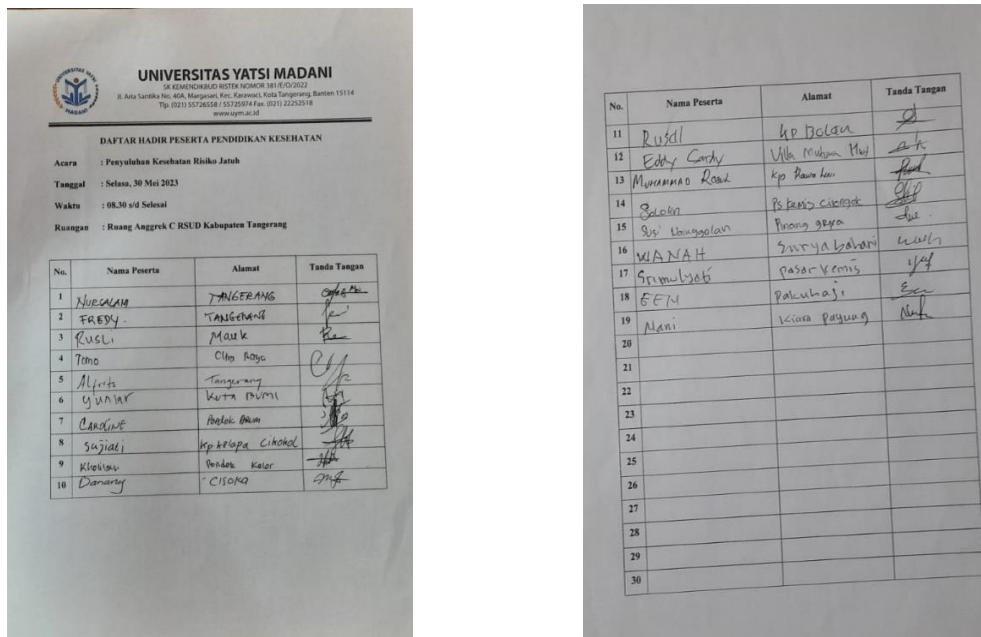 UNIVERSITAS YATSI MADANI
SK KEMENDIKBUD RISTEK NOMOR 381/E/O/2022
Jl. Aria Santika No. 40A, Margasari, Kec. Karawaci, Kota Tangerang, Banten 15114
Tlp. (021) 55726558 / 55725974 Fax. (021) 22252518
www.uym.ac.id
DAFTAR HADIR PESERTA PENDIDIKAN KESEHATAN
Acara : Penyuluhan Kesehatan Risiko Jatuh
Tanggal : Selasa, 30 Mei 2023
Waktu : 08.30 s/d Selesai
Ruangan : Ruang Anggrek C RSUD Kabupaten Tangerang
No. Nama Peserta Alamat Tanda Tangan
1 NURSALAM TANGERANG
2 FREDY. TANGERANG
3 RUSLI Mauk
4 Tomo Raya
5 Alfrits Tangerang
6 Yuniar Kuta Bumi
7 CAROLINE Pondok
8 Sujiati Kp Kelapa Cikokol
9 Pondok Kelor
10 Danang CISOKA
No. Nama Peserta Alamat Tanda Tangan
11 Rusdi Kp
12 Eddy Villa
13 MUHAMMAD Kp
14 Ps Kemis
15 Susi Pinang
16 WANAH Surya bahari
17 Srimulyati Pasar Kemis
18 EEN Pakuhaji
19 Nani Kiara Payung
20
21
22
23
24
25
26
27
28
29
30